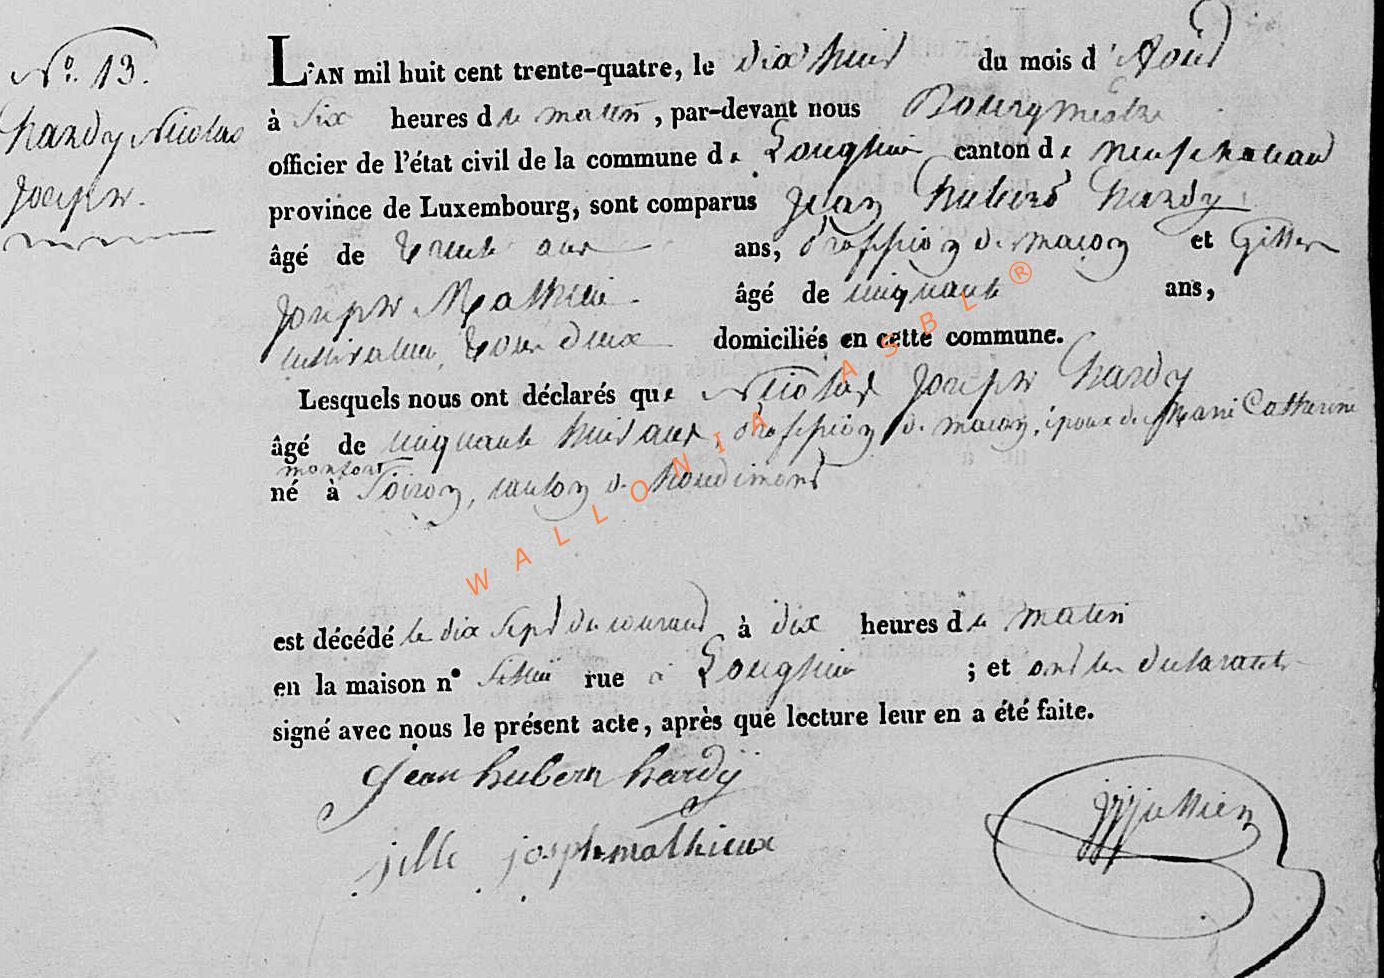 Nº. 13.
hardy Nicolas
Joseph.
L'AN mil huit cent trente-quatre, le dix huit du mois d'Août
à Six heures de matin, par-devant nous Bourgmestre
officier de l'état civil de la commune de Longlier canton de neufchateau
province de Luxembourg, sont comparus Jean hubert hardy
âgé de trente ans ans, proffession de maçon et Gilles
Joseph Mathieu. âgé de cinquante ans,
cultivateur, tous deux domiciliés en cette commune.
Lesquels nous ont déclarés que Nicolas Joseph hardy
âgé de cinquante huit ans, proffession de maçon, époux de Marie Catherine
monfort
né à Soiron, canton de houdimont
est décédé le dix sept du courant à dix heures de matin
en la maison nº rue à Longlier ; et ont les declarants
signé avec nous le présent acte, après que lecture leur en a été faite.
Jean hubert hardÿ
jille josph mathieux
WALLONIA ASBL ®